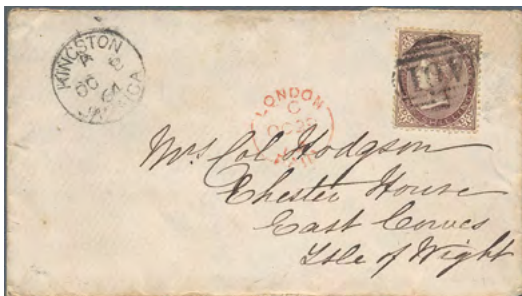 KINGSTON
JAMAICA
LONDON
C
PAID
A01
Mrs Col Hodgson
Chester House
East Cowes
Isle of Wight